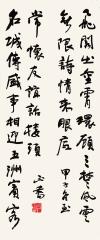 飛閣出重霄環顧三楚風雲
無限詩情來眼底
甲子年
名城傳盛事相迎五洲賓客
常懷友誼話樓頭